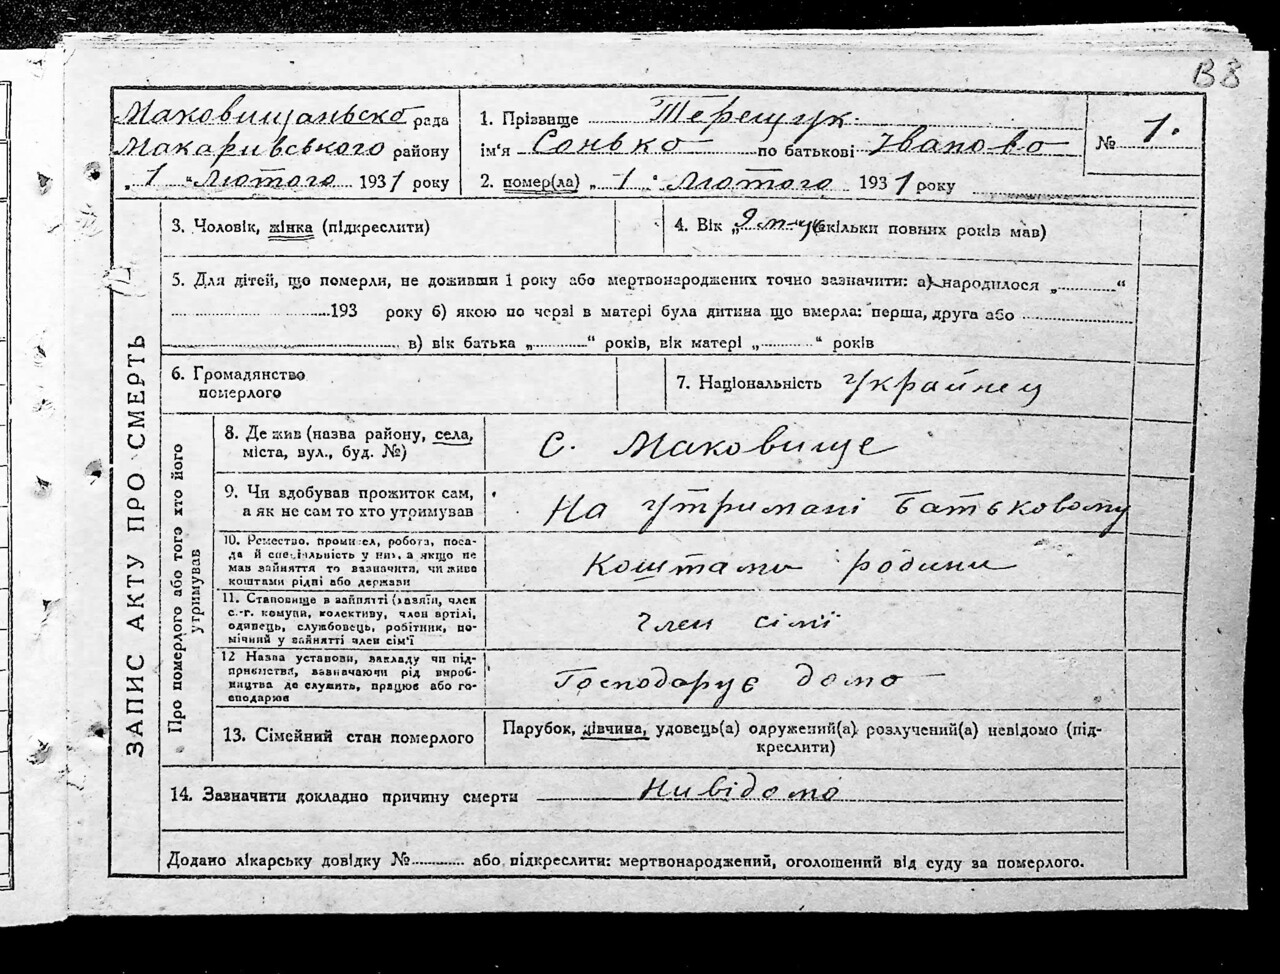 В8
Маковищансько рада
Макарівського району
„ 1 “ Лютого 1931 року
1. Прізвище Терещук.
ім'я Сонько по батькові Іваново
2. помер(ла) „ 1 “ Лютого 1931 року
№ 1.
ЗАПИС АКТУ ПРО СМЕРТЬ
3. Чоловік, жінка (підкреслити)
4. Вік „ (скільки повних років мав)
5. Для дітей, що померли, не доживши 1 року або мертвонароджених точно зазначити: а) народилося „ “
193 року б) якою по черзі в матері була дитина що вмерла: перша, друга або
в) вік батька „ “ років, вік матері „ “ років
6. Громадянство
померлого
7. Національність Украйнец
Про померлого або того хто його
утримував
8. Де жив (назва району, села,
міста, вул., буд. №)
С. Маковище
9. Чи здобував прожиток сам,
а як не сам то хто утримував
На утримані батьковому
10. Ремество, промисел, робота, поса-
да й спеціяльність у них, а якщо не
мав зайняття то зазначити, чи живе
коштами рідні або держави
Коштами родини
11. Становище в зайнятті (хазяїн, член
с.-г. комуни, колективу, член артілі,
одинець, службовець, робітник, по-
мічний у зайнятті член сім'ї
Член сімї
12 Назва установи, закладу чи під-
приємства, зазначаючи рід вироб-
ництва де служить, працює або го-
сподарює
Господарує дома
13. Сімейний стан померлого
Парубок, дівчина, удовець(а) одружений(а) розлучений(а) невідомо (під-
креслити)
14. Зазначити докладно причину смерти Нивідомо
Додано лікарську довідку № або підкреслити: мертвонароджений, оголошений від суду за померлого.